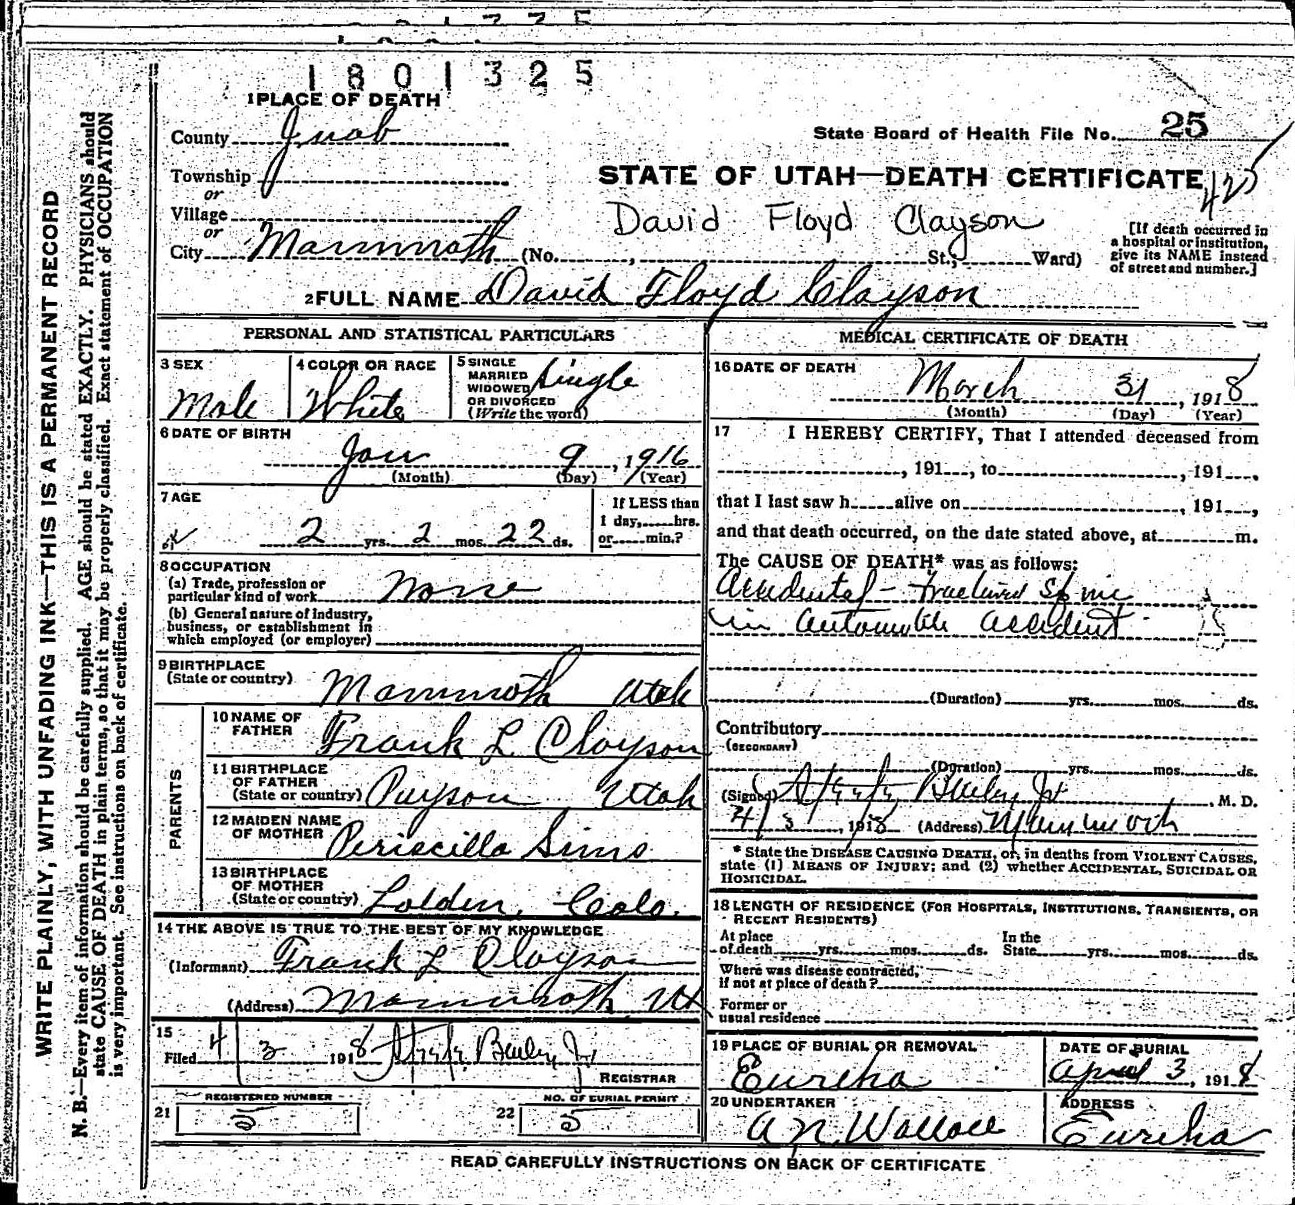 1801325
1 PLACE OF DEATH
County Juab
State Board of Health File No. 25
425
Township
or
Village
or
City Mammoth (No. , St.; Ward)
STATE OF UTAH—DEATH CERTIFICATE
David Floyd Clayson
[If death occurred in
a hospital or institution,
give its NAME instead
of street and number.]
2 FULL NAME David Floyd Clayson
PERSONAL AND STATISTICAL PARTICULARS
3 SEX
Male
4 COLOR OR RACE
White
5 SINGLE
MARRIED
WIDOWED
OR DIVORCED
(Write the word)
Single
6 DATE OF BIRTH
Jan 9, 1916
(Month) (Day) (Year)
7 AGE
2 yrs. 2 mos. 22 ds.
If LESS than
1 day, hrs.
or min.?
8 OCCUPATION
(a) Trade, profession or
particular kind of work None
(b) General nature of industry,
business, or establishment in
which employed (or employer)
9 BIRTHPLACE
(State or country) Mammoth Utah
PARENTS
10 NAME OF
FATHER Frank L Clayson
11 BIRTHPLACE
OF FATHER
(State or country) Payson Utah
12 MAIDEN NAME
OF MOTHER Periscilla Sims
13 BIRTHPLACE
OF MOTHER
(State or country) Lolden, Colo.
14 THE ABOVE IS TRUE TO THE BEST OF MY KNOWLEDGE
(Informant) Frank L Clayson
(Address) Mammoth, Ut
15
Filed 4/3 1918 Bailey Jr
REGISTRAR
REGISTERED NUMBER
21 5
NO. OF BURIAL PERMIT
22 5
MEDICAL CERTIFICATE OF DEATH
16 DATE OF DEATH
March 31, 1918
(Month) (Day) (Year)
17 I HEREBY CERTIFY, That I attended deceased from
, 191 , to , 191 ,
that I last saw h alive on , 191 ,
and that death occurred, on the date stated above, at m.
The CAUSE OF DEATH* was as follows:
Accidental - Fractured Spine
in automobile accident
(Duration) yrs. mos. ds.
Contributory
(SECONDARY)
(Duration) yrs. mos. ds.
(Signed) Bailey Jr , M. D.
4/3, 1918 (Address) Mammoth
* State the DISEASE CAUSING DEATH, or, in deaths from VIOLENT CAUSES,
state (1) MEANS OF INJURY; and (2) whether ACCIDENTAL, SUICIDAL OR
HOMICIDAL.
18 LENGTH OF RESIDENCE (FOR HOSPITALS, INSTITUTIONS, TRANSIENTS, OR
RECENT RESIDENTS)
At place
of death yrs. mos. ds.
In the
State yrs. mos. ds.
Where was disease contracted,
if not at place of death?
Former or
usual residence
19 PLACE OF BURIAL OR REMOVAL
Eureka
DATE OF BURIAL
April 3, 1918
20 UNDERTAKER
A N Wallace
ADDRESS
Eureka
READ CAREFULLY INSTRUCTIONS ON BACK OF CERTIFICATE
WRITE PLAINLY, WITH UNFADING INK—THIS IS A PERMANENT RECORD
N. B.—Every item of information should be carefully supplied. AGE should be stated EXACTLY. PHYSICIANS should
state CAUSE OF DEATH in plain terms, so that it may be properly classified. Exact statement of OCCUPATION
is very important. See instructions on back of certificate.